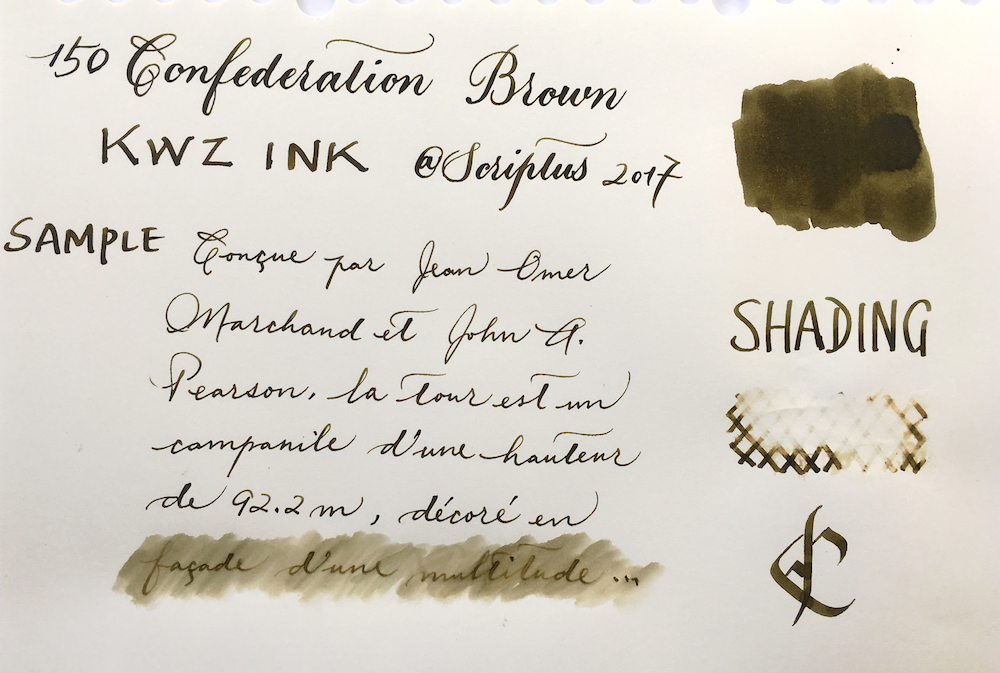 150 Confederation Brown
KWZ INK @Scriptus 2017
SAMPLE Conçue par Jean Omer
Marchand et John A.
Pearson, la tour est un
campanile d'une hauteur
de 92.2 m, décoré en
façade d'une multitude...
SHADING
C